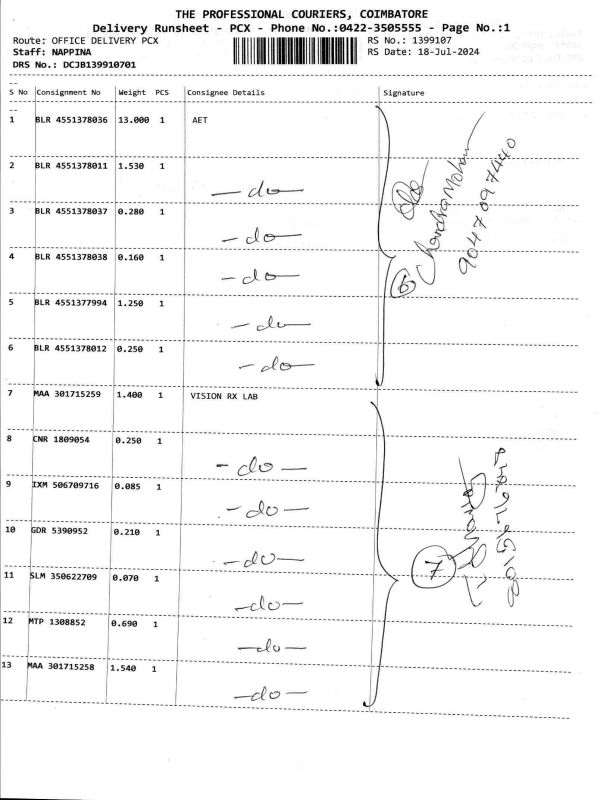 THE PROFESSIONAL COURIERS, COIMBATORE
Delivery Runsheet - PCX - Phone No.:0422-3505555 - Page No.:1
Route: OFFICE DELIVERY PCX RS No.: 1399107
Staff: NAPPINA RS Date: 18-Jul-2024
DRS No.: DCJB139910701
S No Consignment No Weight PCS Consignee Details Signature
1 BLR 4551378036 13.000 1 AET
2 BLR 4551378011 1.530 1
- do -
3 BLR 4551378037 0.280 1
- do -
4 BLR 4551378038 0.160 1
- do -
5 BLR 4551377994 1.250 1
- do -
6 BLR 4551378012 0.250 1
- do -
6
Chandra Mohan
9047097440
7 MAA 301715259 1.400 1 VISION RX LAB
8 CNR 1809054 0.250 1
- do -
9 IXM 506709716 0.085 1
- do -
10 GDR 5390952 0.210 1
- do -
11 SLM 350622709 0.070 1
- do -
12 MTP 1308852 0.690 1
- do -
13 MAA 301715258 1.540 1
- do -
7